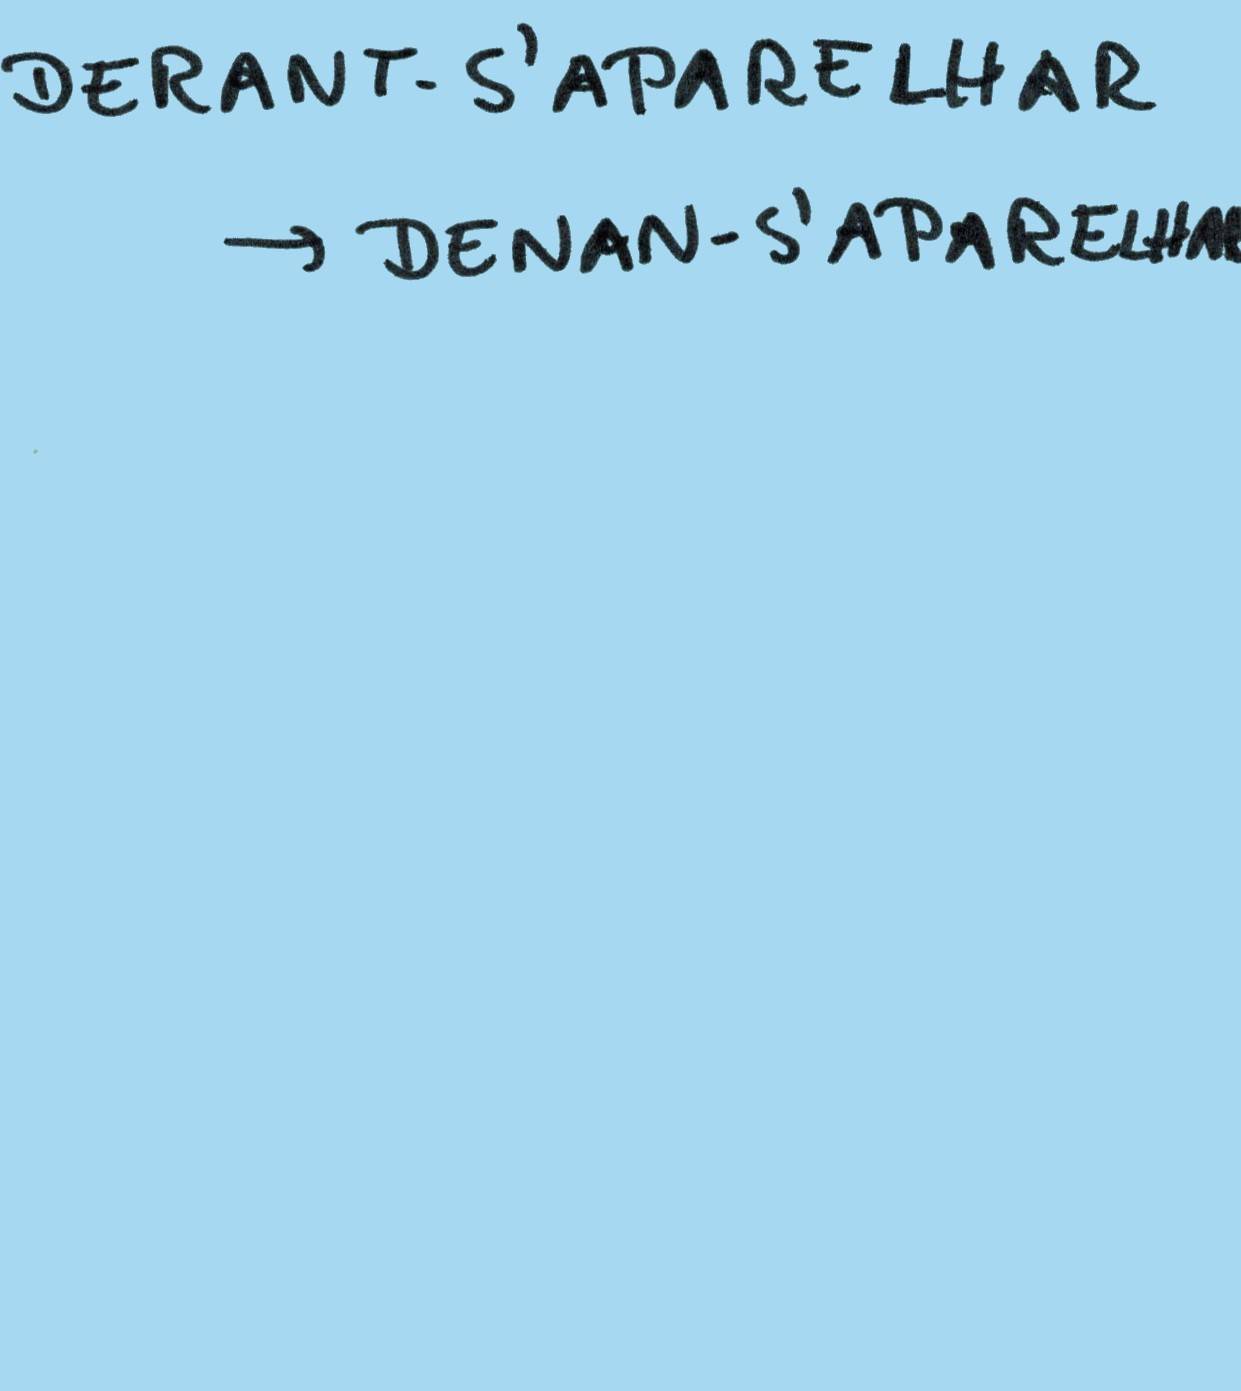 DERANT-S'APARELHAR
→ DENAN-S'APARELHAR